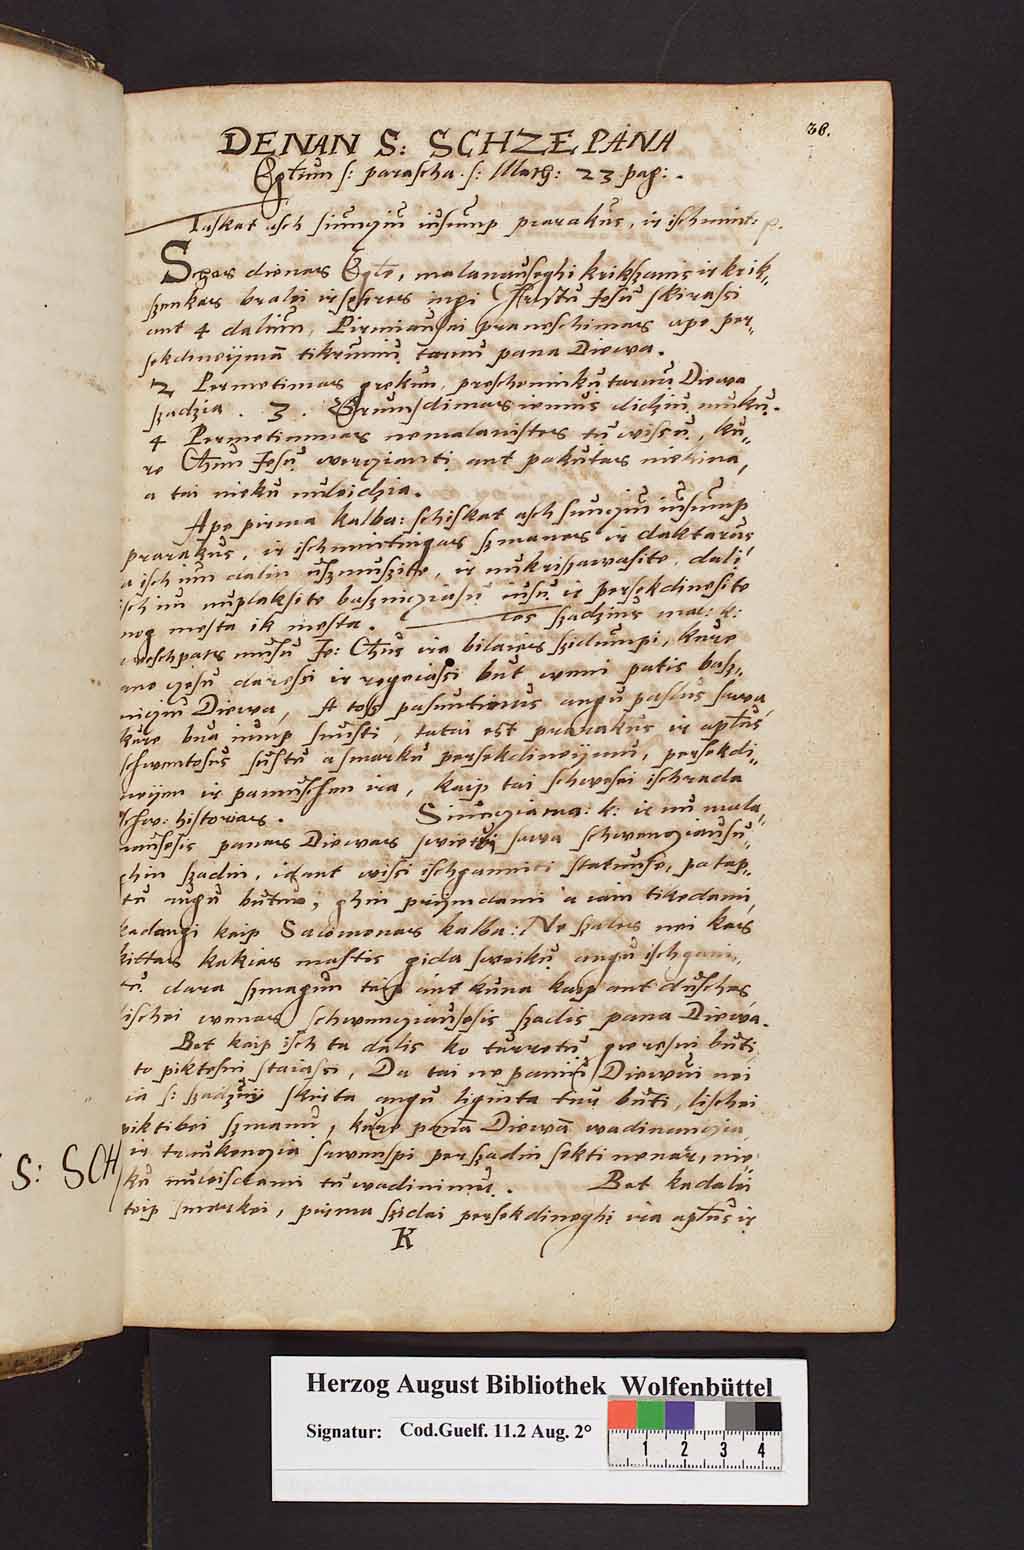 36.
DENAN S: SCHZEPANA
Egl̃ium s: parascha s: Math: 23 pag:.
Taskat asch siuncziu iusump prarakus, ir ischmint: p.
Schas dienas Egl̃e, malanauseghi krikszanis ir krik„
szenkas bralei ir seseres inpi Christu Jesu skirassi
ant 4 daliun, Pirmiausei praneschimas ape per„
sekdineijma tikruniu tarnu pana Diewa.
2 Permetimas grekun, prescheniku tarnu Diewa
szadzia. 3. Grumsdimas iemus didziu muku.
4 Permetimmas nemalanistes tu wissu, ku„
re Chũm Jesu werczianti ant pakutas niekina,
a tai nieku nuleidzia.
Ape pirma kalba: schiskat asch suncziu iusump
prarakus, ir ischmintingas szmanes ir daktarus
a isch iun dalin uszmuszite, ir nukriszawasite, dali
isch iu nuplaksite basznicziasu iusu ir persekdinesite
nog mesta ik mesta. Tos szadzius mal: k:
wieschpats musu Je: Chũs ira bilaies szidumpi, kure
ane czesu daressi ir regeiassi but weni patis basz„
nicziu Diewa, A tos pasuntinius angu paslus sawa
kure bua iump siusti, tatai est prarakus ir apl̃us
schwentosus sustu asmarku persekdineijmu, persekdi„
neijen ir pamuschen ira, kaip tai schwesei ischrada
schw: historias. Siuncziama: k: ir nu mala„
nusesis panas Diewas swietui sawa schwencziausu„
ghin szadin, idant wissi ischganiti statunse, patap„
tu angu butu, ghin priijmdami a iam tikedami,
kadangi kaip Salomonas kalba: Ne szales nei kas
kittas kakias mastis gida sweiku angu ischgani„
tu dara szmagun taip ant kuna kaip ant duschas
lischei wenas schwencziausesis szadis pana Diewa.
Bet kaip isch ta dalis ko turretu geresni buti
to piktesni staiassi, Da tai ne pamui Diewui nei
ia s: szadzui skirta angu liginta tur buti, lischei
piktibei szmanu, kure pana Diewa wadinanczia
ir traukenczia sawenspi perszadin sekti nenar, nie
ku nuleisdami tu wadinimu. Bet kadalei
teip smarkei, pirma szidai persekdineghi ira apl̃us ir
K
S: SCH
Herzog August Bibliothek Wolfenbüttel
Signatur: Cod.Guelf. 11.2 Aug. 2°
1 2 3 4